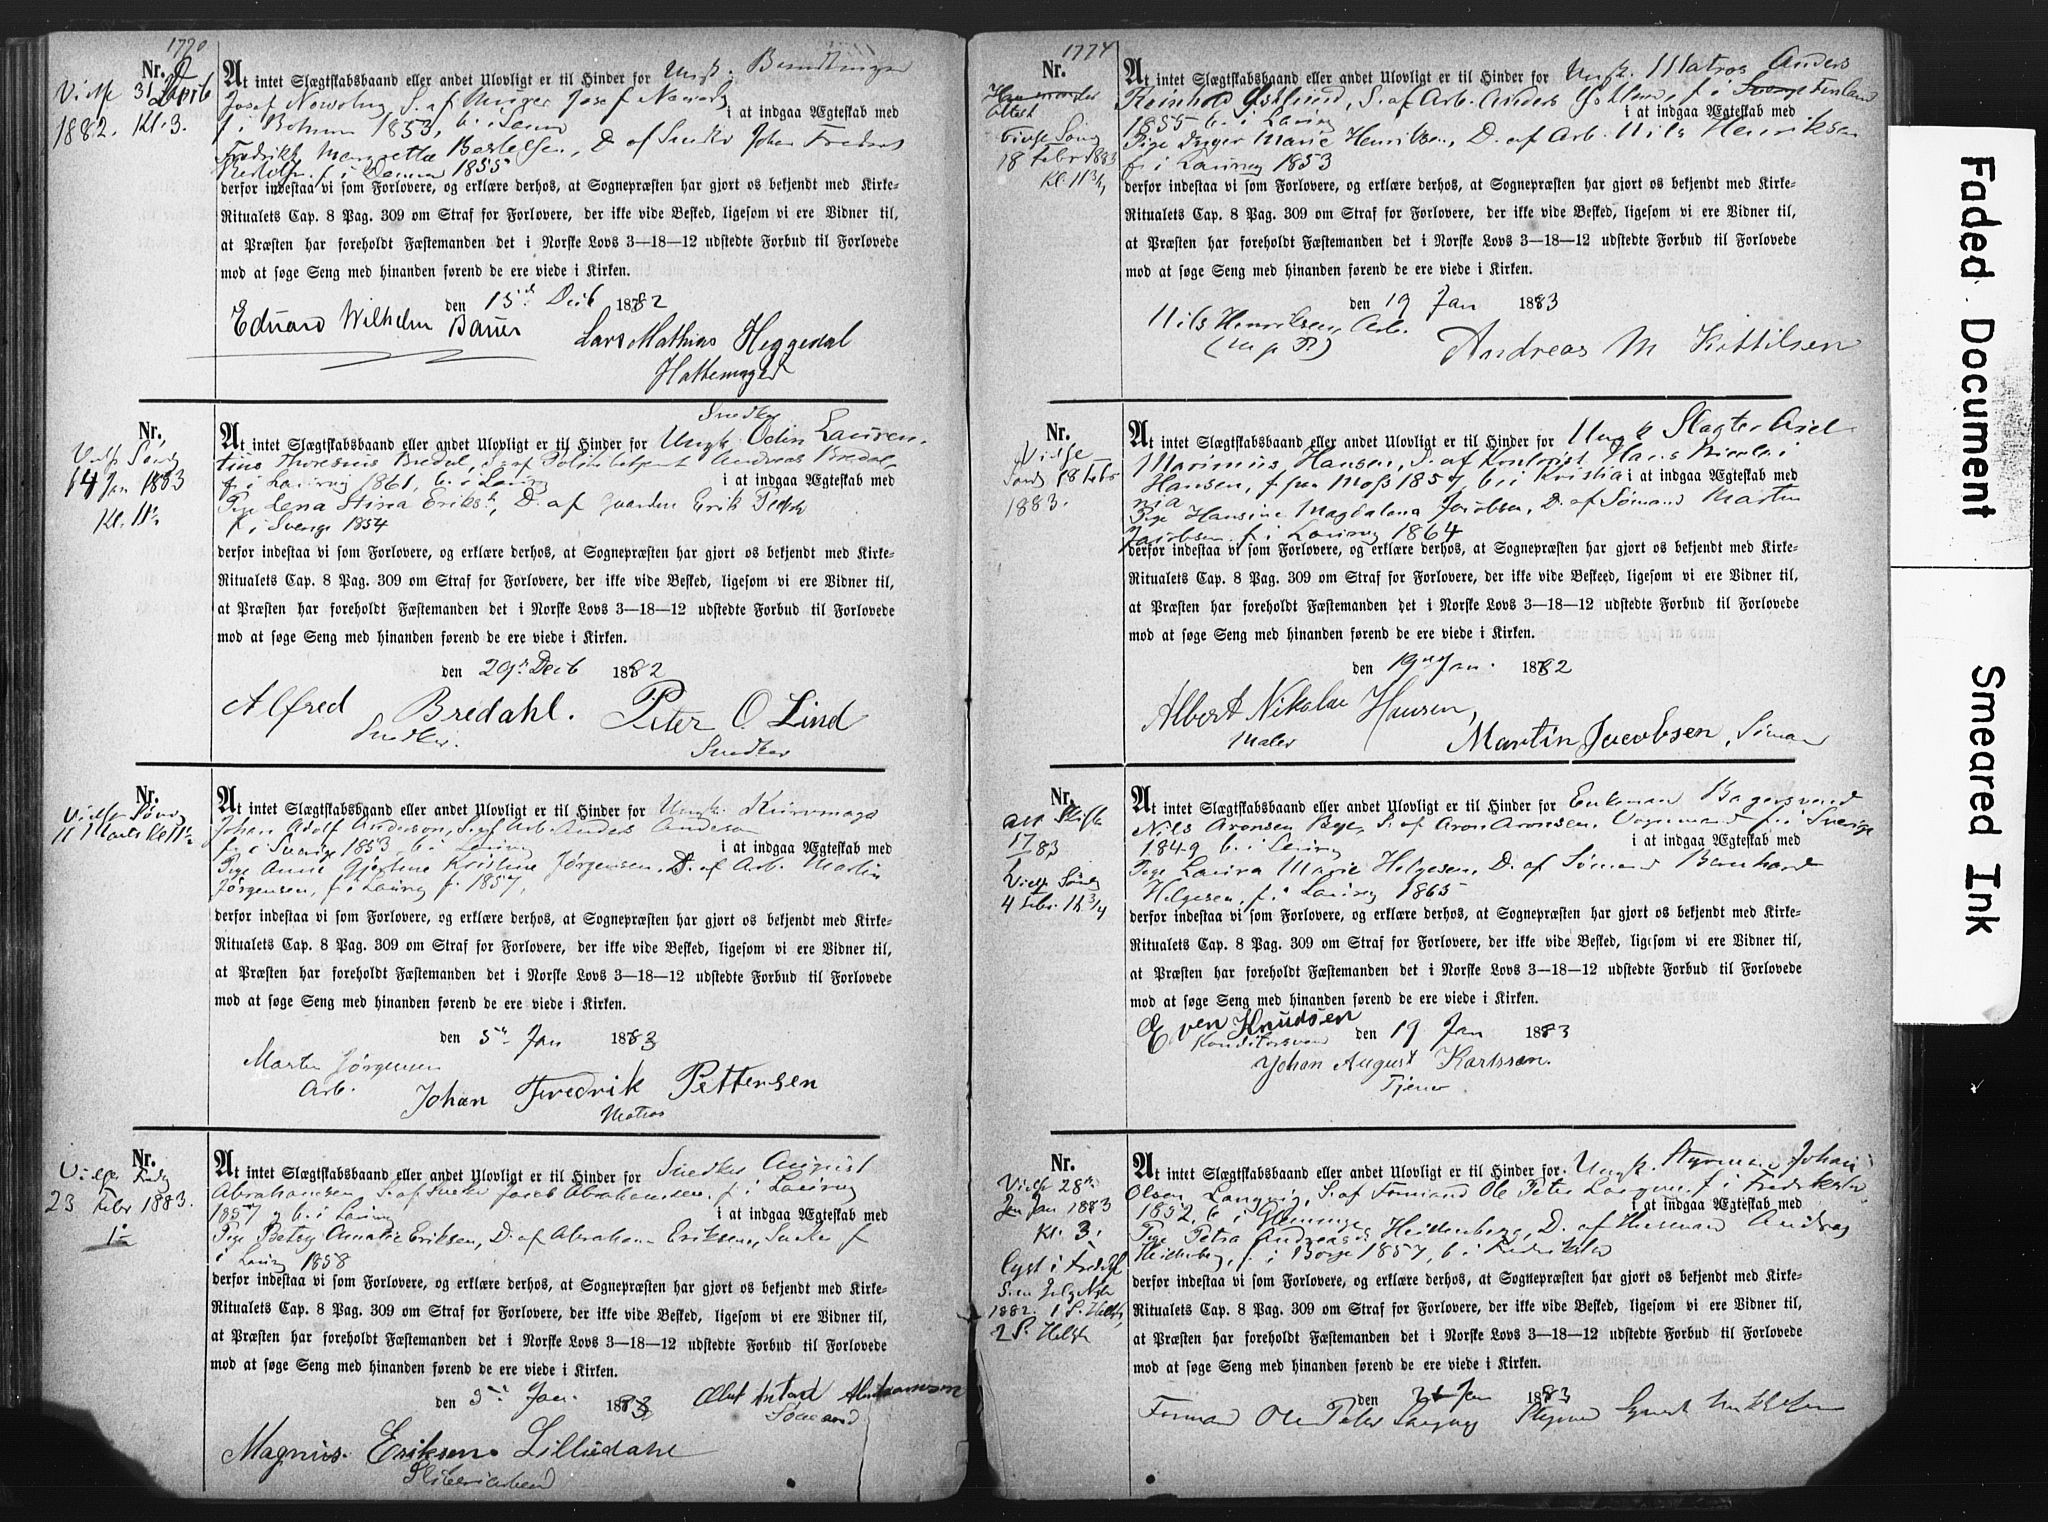 1770
Nr.
Vielse 31 Decb
1882. Kl. 3.
At intet Slægtskabsbaand eller andet Ulovligt er til Hinder for Ungk.
Josef Nowotny S. af Josef
i at indgaa Ægteskab med
f. i 1853, b. i
Fredrikke Margrethe Bertelsen, D. af Snedker Johan
f. i 1855
derfor indestaa vi som Forlovere, og erklære derhos, at Sognepræsten har gjort os bekjendt med Kirke-
Ritualets Cap. 8 Pag. 309 om Straf for Forlovere, der ikke vide Besked, ligesom vi ere Vidner til,
at Præsten har foreholdt Fæstemanden det i Norske Lovs 3—18—12 udstedte Forbud til Forlovede
mod at søge Seng med hinanden førend de ere viede i Kirken.
den 15de Decb 1882
Eduard Wilhelm Bauer
Lars Mathias Heggedal
Hattemager
Nr.
Vielse Sønd
14 Jan 1883
Kl.
Snedker
At intet Slægtskabsbaand eller andet Ulovligt er til Hinder for Ungk. Odin Lauren-
tius Thoresius Bredal, S. af Andreas Bredal
i at indgaa Ægteskab med
f. i Laurvig 1861, b. i Laurvig
Pige Lena Stina Eriksd., D. af Gaardm Erik
f. i Sverige 1854
derfor indestaa vi som Forlovere, og erklære derhos, at Sognepræsten har gjort os bekjendt med Kirke-
Ritualets Cap. 8 Pag. 309 om Straf for Forlovere, der ikke vide Besked, ligesom vi ere Vidner til,
at Præsten har foreholdt Fæstemanden det i Norske Lovs 3—18—12 udstedte Forbud til Forlovede
mod at søge Seng med hinanden førend de ere viede i Kirken.
den 29de Decb 1882
Alfred Bredahl. Peter O. Lind
Snedker. Snedker
Nr.
Vielse Sønd
11 Marts Kl
At intet Slægtskabsbaand eller andet Ulovligt er til Hinder for Ungk. Kurvmager
Johan Adolf Anderson, S. af Arb. Anders Anderson
f. i Sverige 1853, b. i Laurvig
i at indgaa Ægteskab med
Pige Anne Gjertine Kristine Jørgensen. D. af Arb. Martin
Jørgensen, f. i Laurvig 1857,
derfor indestaa vi som Forlovere, og erklære derhos, at Sognepræsten har gjort os bekjendt med Kirke-
Ritualets Cap. 8 Pag. 309 om Straf for Forlovere, der ikke vide Besked, ligesom vi ere Vidner til,
at Præsten har foreholdt Fæstemanden det i Norske Lovs 3—18—12 udstedte Forbud til Forlovede
mod at søge Seng med hinanden førend de ere viede i Kirken.
den 5te Jan 1883
Martin Jørgensen
Arb. Johan Fredrik Pettersen
Matros
Nr.
Vielse Fredg
23 Febr 1883.
At intet Slægtskabsbaand eller andet Ulovligt er til Hinder for Snedker August
Abrahamsen S. af Snedker Jacob Abrahamsen, f. i Laurvig
1857 og b. i Laurvig
i at indgaa Ægteskab med
Pige Betsy Amalie Eriksen, D. af Abraham Eriksen, Snedker f.
i Laurvig 1858
derfor indestaa vi som Forlovere, og erklære derhos, at Sognepræsten har gjort os bekjendt med Kirke-
Ritualets Cap. 8 Pag. 309 om Straf for Forlovere, der ikke vide Besked, ligesom vi ere Vidner til,
at Præsten har foreholdt Fæstemanden det i Norske Lovs 3—18—12 udstedte Forbud til Forlovede
mod at søge Seng med hinanden førend de ere viede i Kirken.
den Jan 1883 Abrahamsen
Sømand
Magnus Eriksen Lilliedahl
1774
Nr.
Attest
Vielse Sønd
18 Febr 1883
Kl. 11 3/4
At intet Slægtskabsbaand eller andet Ulovligt er til Hinder for Ungk. Matros Anders
Reinhold Østlund, S. af Arb. Anders Østlund, f. i Finland
i at indgaa Ægteskab med
1855 b. i Laurvig
Pige Inger Marie Henriksen, D. af Arb. Nils Henriksen
f. i Laurvig 1853
derfor indestaa vi som Forlovere, og erklære derhos, at Sognepræsten har gjort os bekjendt med Kirke-
Ritualets Cap. 8 Pag. 309 om Straf for Forlovere, der ikke vide Besked, ligesom vi ere Vidner til,
at Præsten har foreholdt Fæstemanden det i Norske Lovs 3—18—12 udstedte Forbud til Forlovede
mod at søge Seng med hinanden førend de ere viede i Kirken.
den 19 Jan 1883
Nils Henriksen, Arb.
(m. p. P.) Andreas M Kittilsen
Nr.
Vielse
Sønd 18 Febr
1883.
At intet Slægtskabsbaand eller andet Ulovligt er til Hinder for Ungk. Slagter Axel
Marinius Hansen, S. af Hans Nicolai
i at indgaa Ægteskab med
Hansen, f. paa Moss 1857, b. i Kristia
nia
Pige Hansine Magdalena Jacobsen, D. af Sømand Martin
Jacobsen f. i Laurvig 1864
derfor indestaa vi som Forlovere, og erklære derhos, at Sognepræsten har gjort os bekjendt med Kirke-
Ritualets Cap. 8 Pag. 309 om Straf for Forlovere, der ikke vide Beskeed, ligesom vi ere Vidner til,
at Præsten har foreholdt Fæstemanden det i Norske Lovs 3—18—12 udstedte Forbud til Forlovede
mod at søge Seng med hinanden førend de ere viede i Kirken.
den 19de Jan. 1882
Albert Nikolai Hansen,
Maler Martin Jacobsen, Sømand
Nr.
Att Skifte
17/83
Vielse Sønd
4 Febr. 11 3/4
At intet Slægtskabsbaand eller andet Ulovligt er til Hinder for Enkemand Bagersvend
Nils Aronsen Bye, S. af Aron Aronsen, Vognmand f. i Sverige
i at indgaa Ægteskab med
1849 b. i Laurvig
Pige Laura Marie Helgesen, D. af Sømand Bernhard
Helgesen, f. i Laurvig 1865
derfor indestaa vi som Forlovere, og erklære derhos, at Sognepræsten har gjort os bekjendt med Kirke-
Ritualets Cap. 8 Pag. 309 om Straf for Forlovere, der ikke vide Besked, ligesom vi ere Vidner til,
at Præsten har foreholdt Fæstemanden det i Norske Lovs 3—18—12 udstedte Forbud til Forlovede
mod at søge Seng med hinanden førend de ere viede i Kirken.
Even Knudsen den 19 Jan 1883
Konditorsvend
Johan August Karlsson.
Tjener
Nr.
Vielse 28de
Jan 1883
Kl. 3.
Lyst i
1882.
At intet Slægtskabsbaand eller andet Ulovligt er til Hinder for Ungk. Styrmand Johan
Olsen Langvig, S. af Formand Ole Peter Langvig f. i Fredrikstad
i at indgaa Ægteskab med
1852, b. i Glemminge
Pige Petra Andreasd. Heidenberg, D. af Husmand Andreas
Heidenberg, f. i Borge 1857, b. i Fredrikstad
derfor indestaa vi som Forlovere, og erklære derhos, at Sognepræsten har gjort os bekjendt med Kirke-
Ritualets Cap. 8 Pag. 309 om Straf for Forlovere, der ikke vide Besked, ligesom vi ere Vidner til,
at Præsten har foreholdt Fæstemanden det i Norske Lovs 3—18—12 udstedte Forbud til Forlovede
mod at søge Seng med hinanden førend de ere viede i Kirken.
den Jan 1883
Formand Ole Peter Langvig Styrmand
Faded Document
Smeared Ink